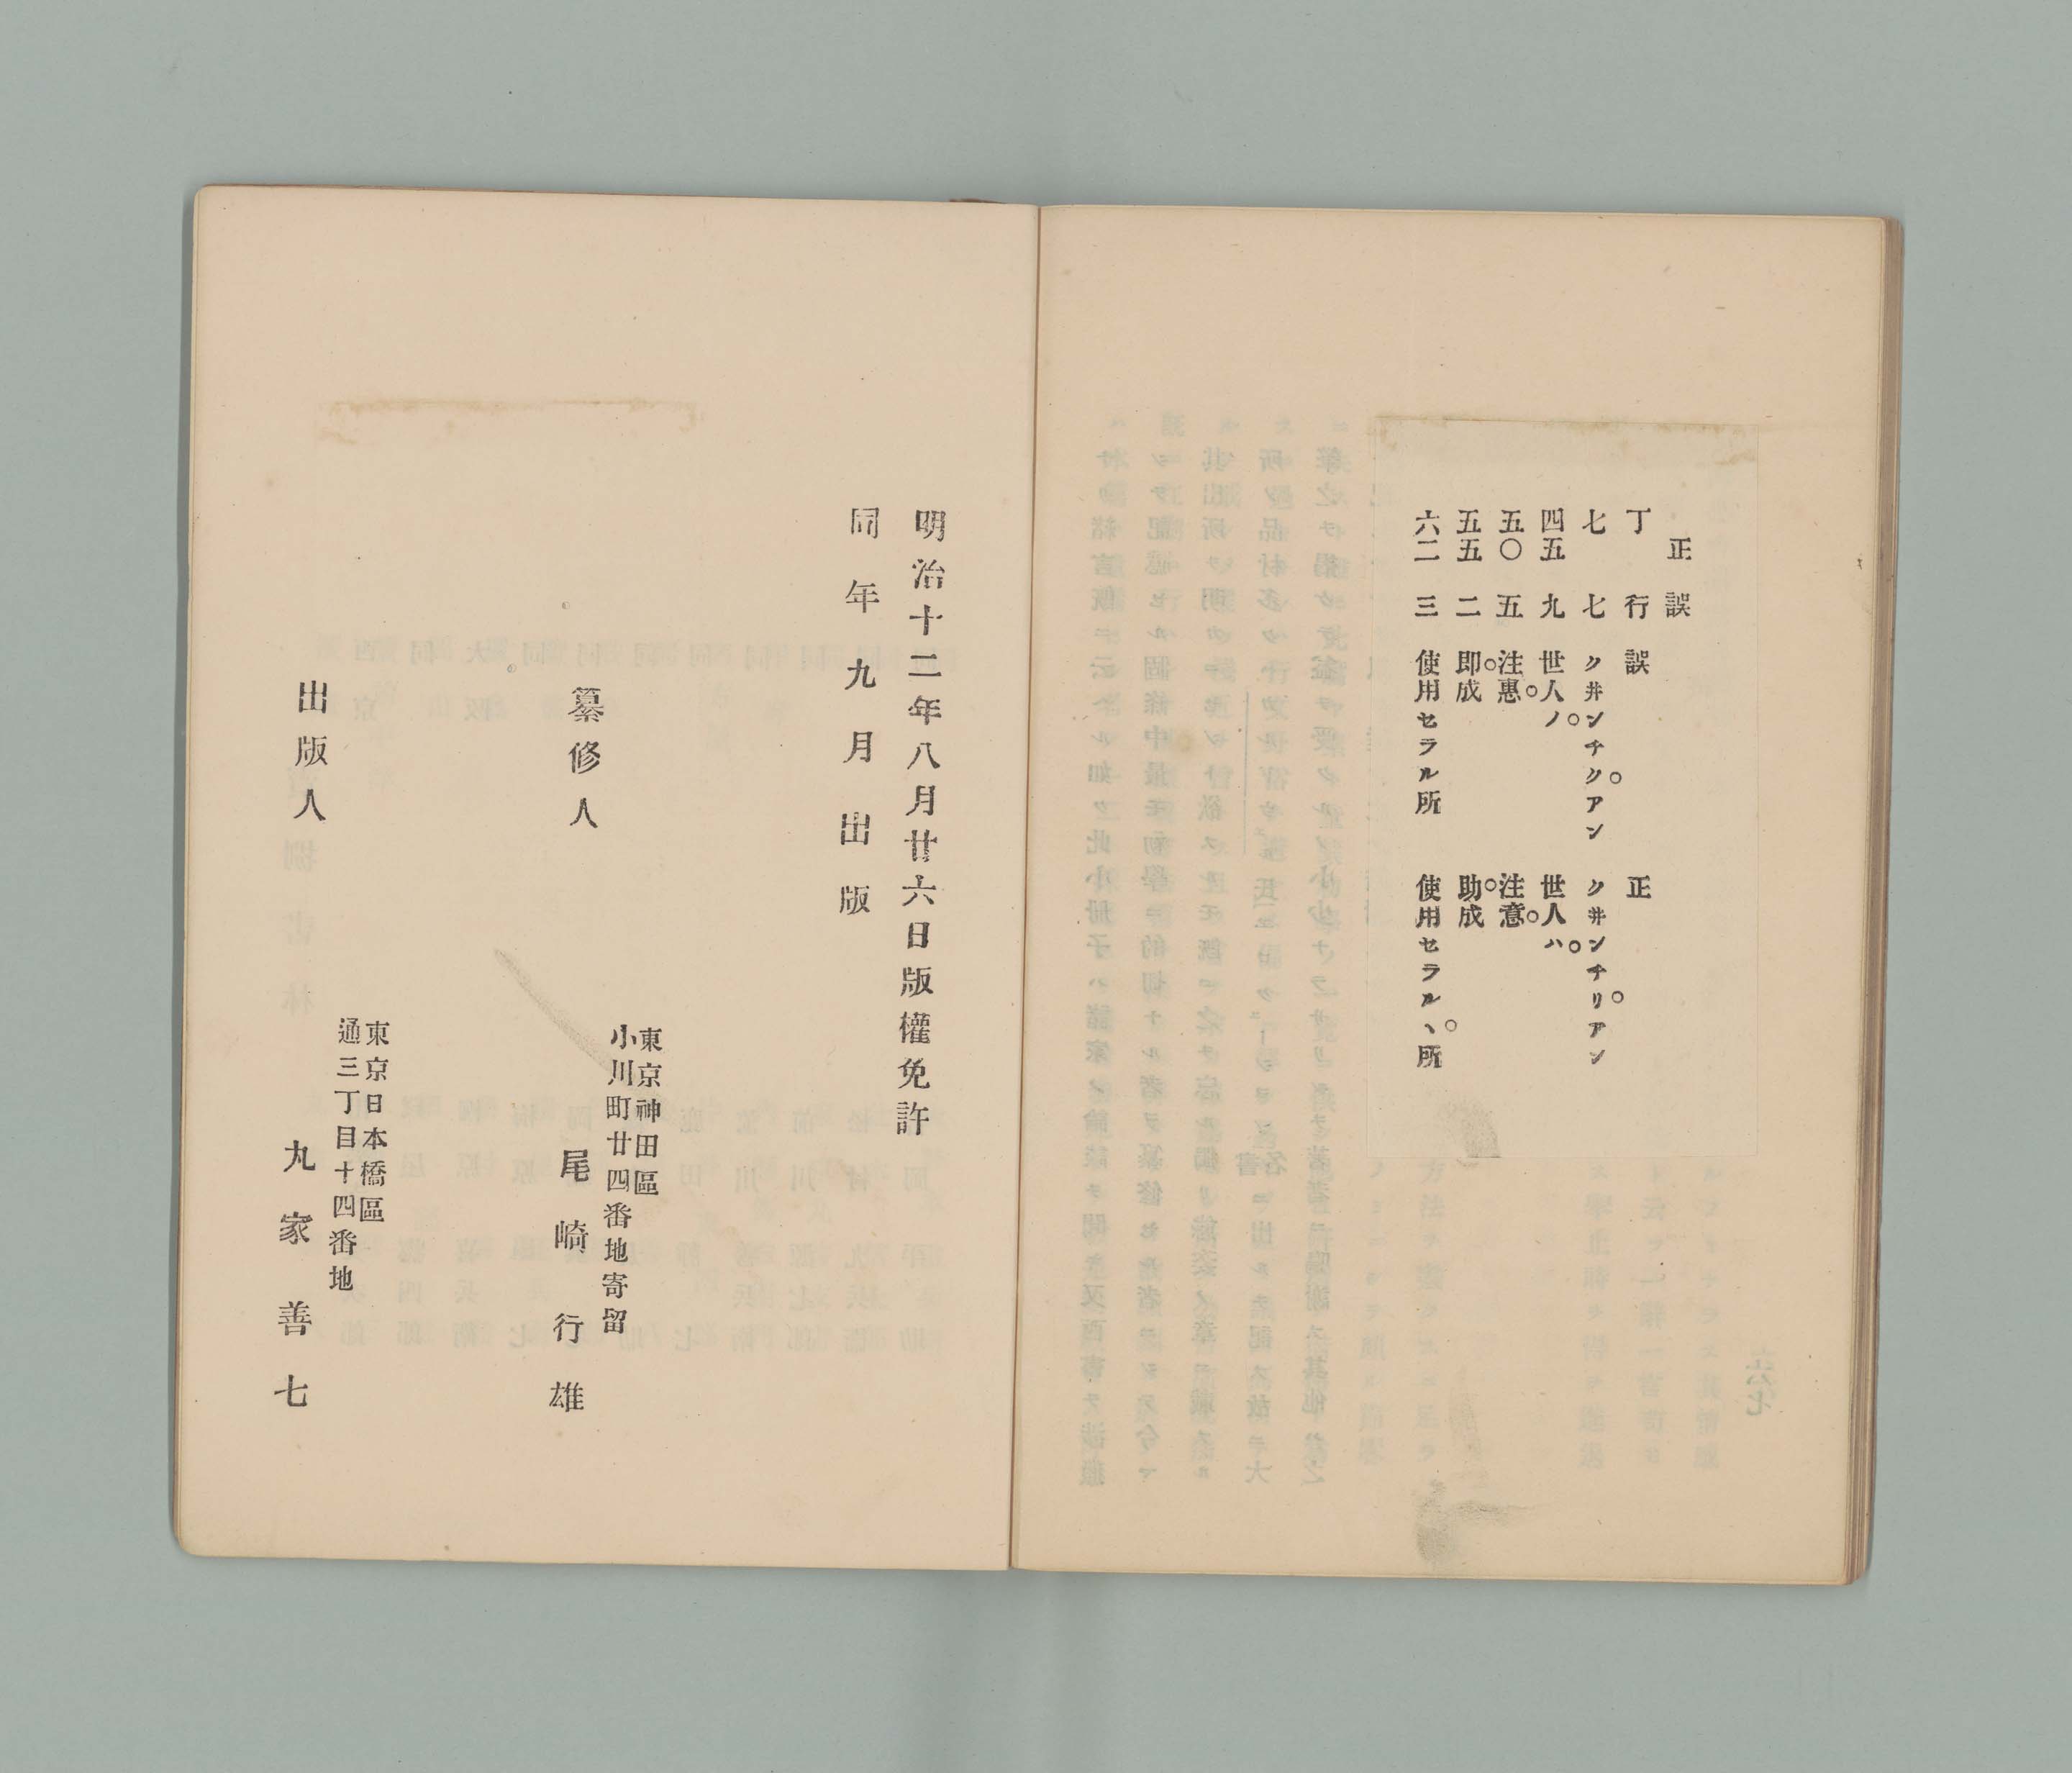 正誤
丁 行 誤 正
七 七 ク井ンチクアン ク井ンチリアン
四五 九 世人ノ 世人ハ
五〇 五 注惠 注意
五五 二 即成 助成
六二 三 使用セラル所 使用セラルヽ所
明治十二年八月廿六日版權免許
同年九月出版
東京神田區
小川町廿四番地寄留
纂修人 尾崎行雄
東京日本橋區
通三丁目十四番地
出版人 丸家善七